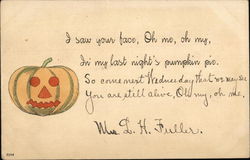 I saw your face, Oh me, oh my,
In my last night's pumpkin pie.
So come next Wednesday that we may see
You are still alive, Oh my, oh me.
Mrs L. H. Fuller.